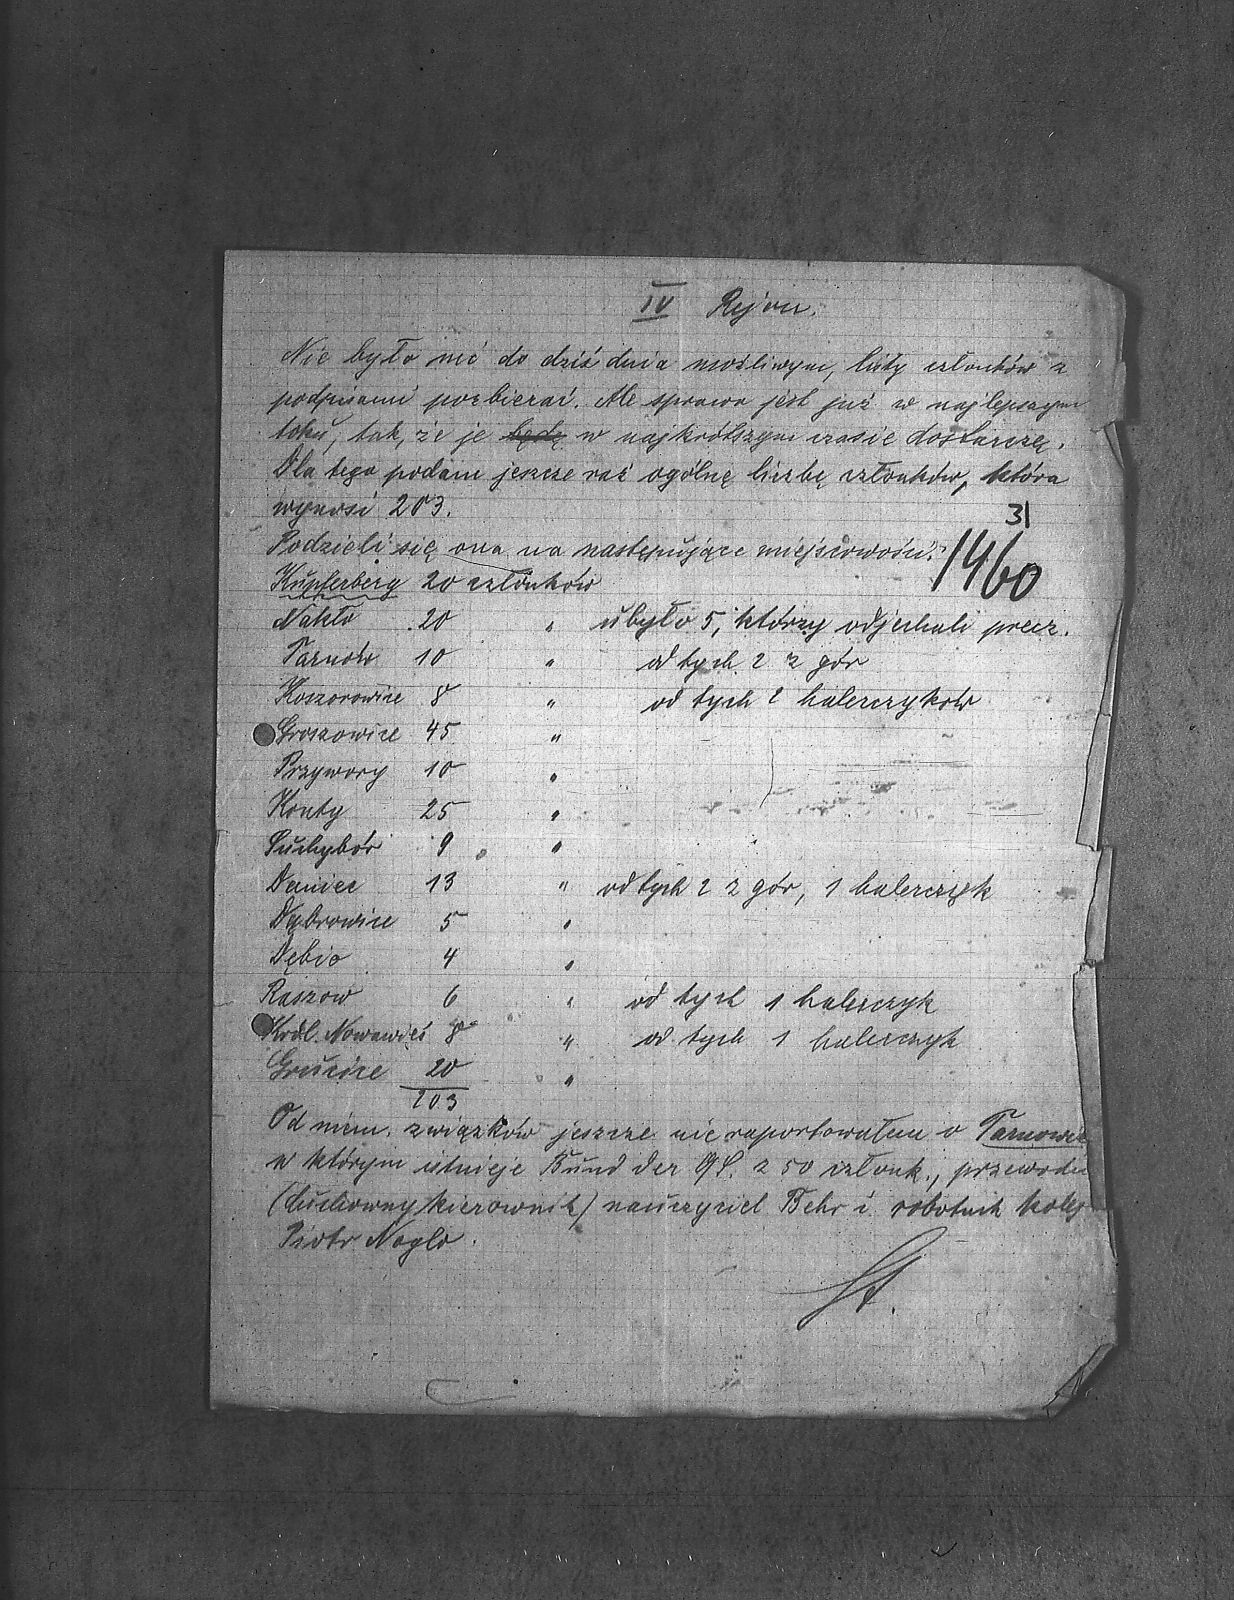 IV Rejon.
Nie było mé do dziś dnia możliwym, listy członków z
podpisami pozbierać. Ale sprawa jest już w najlepszym
toku, tak, że je będę w najkrótszym czasie dostarczę.
Dla tego podam jeszcze raz ogólnę liczbę członków, która
wynosi 203.
31
Podzieli się ona na następujące miejscowości:
1460
Kupferberg 20 członków
Nakło 20 " ubyło 5, którzy odjechali precz.
Tarnów 10 " od tych 2 z gór
Koszorowice 8 " od tych 2 halerczyków
Groszowice 45 "
Przywory 10 "
Konty 25 "
Suchybór 9 "
Daniec 13 " od tych 2 z gór, 1 halerczyk
Dąbrowice 5 "
Dębie 4 "
Raszow 6 " od tych 1 halerczyk
Król. Nowawieś 8 " od tych 1 halerczyk
Grudzice 20 "
203
Od niem. związków jeszcze nie raportowałem o Tarnowie
w którym istnieje Bund der 2 50 członk., przewodn
(duchowny kierownik) nauczyciel Behr i robotnik kolej
Piotr Noglo.